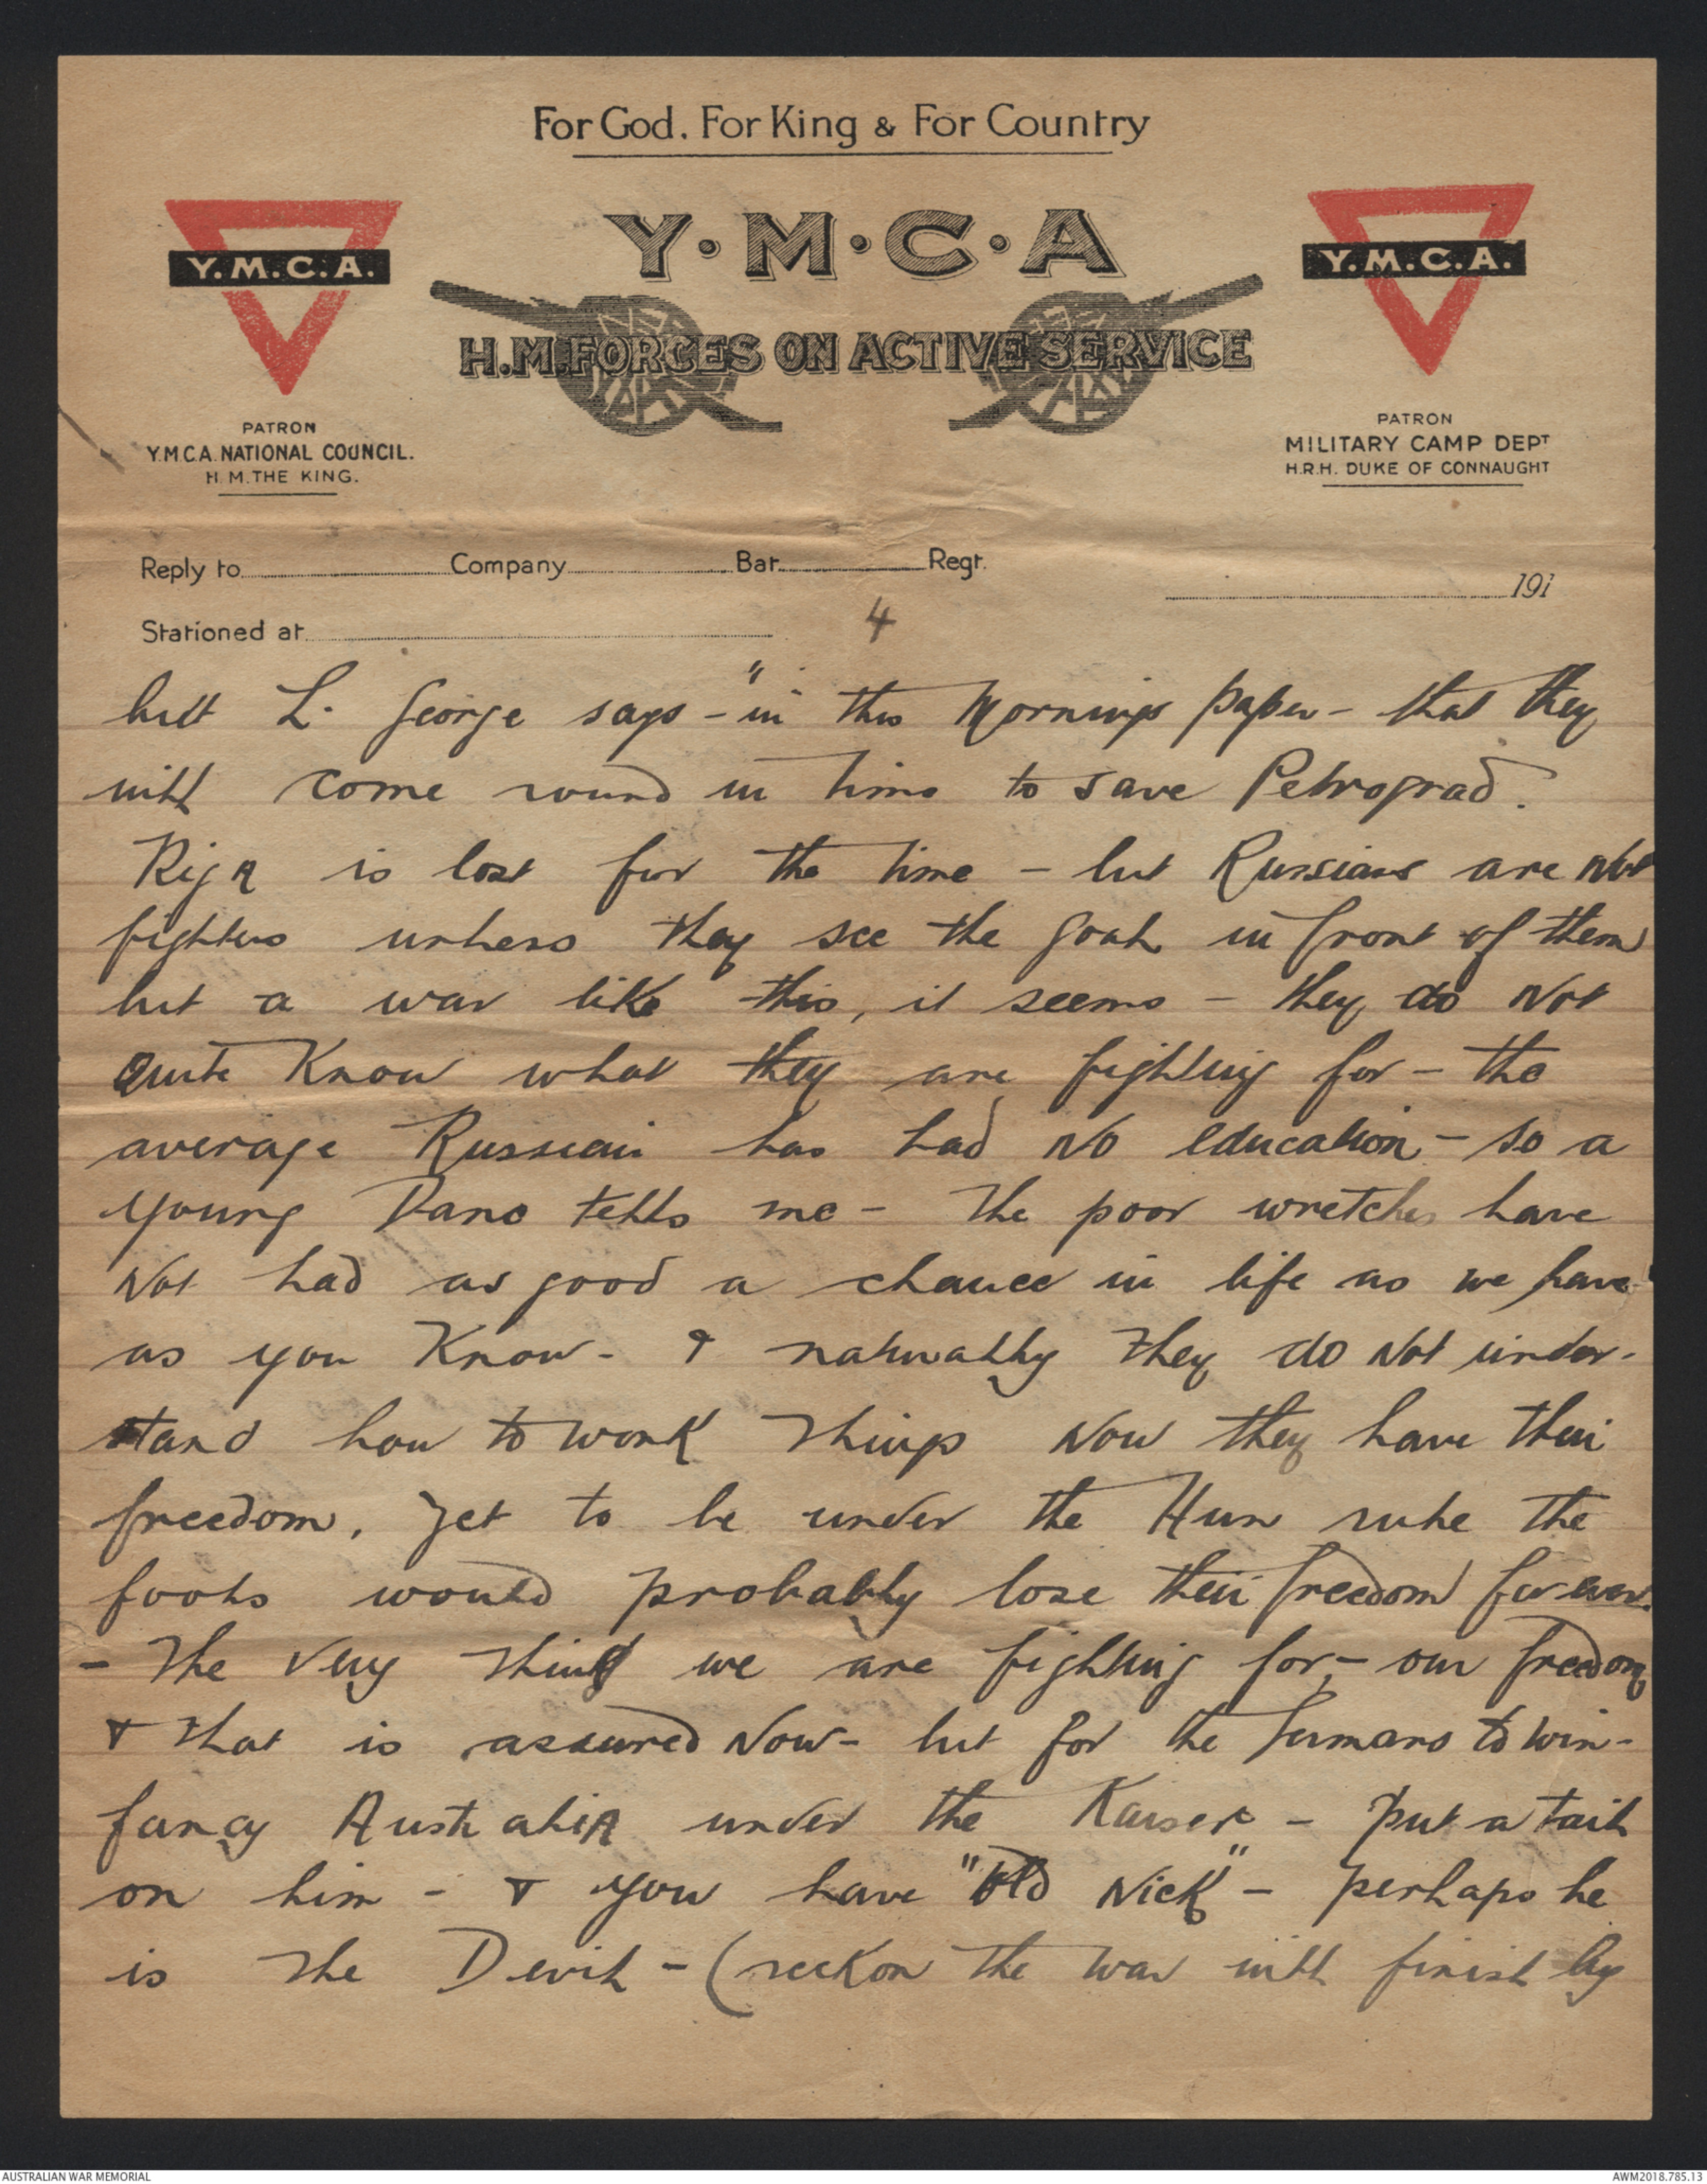 For God, For King & For Country
Y·M·C·A
H.M. FORCES ON ACTIVE SERVICE
Y.M.C.A.
PATRON
Y.M.C.A. NATIONAL COUNCIL.
H.M. THE KING.
Y.M.C.A.
PATRON
MILITARY CAMP DEPT
H.R.H. DUKE OF CONNAUGHT
Reply to Company Bat. Regt.
191
Stationed at
4
but L. George says - "in this Mornings paper - that they
will come round in time to save Petrograd.
Riga is lost for the time - but Russians are not
fighters unless they see the goal in front of them
but a war like this, it seems - they do not
quite Know what they are fighting for - the
average Russian has had no education - so a
young Dane tells me - the poor wretches have
not had as good a chance in life as we have
as you Know - & naturally they do not under-
stand how to work things now they have their
freedom, yet to be under the Hun rule the
fools would probably lose their freedom for ever.
- The very thing we are fighting for, - our freedom
& that is assured now - but for the Germans to win -
fancy Australia under the Kaiser - put a tail
on him - & you have "Old Nick" - perhaps he
is the Devil - (reckon the war will finish by
AUSTRALIAN WAR MEMORIAL
AWM2018.785.13